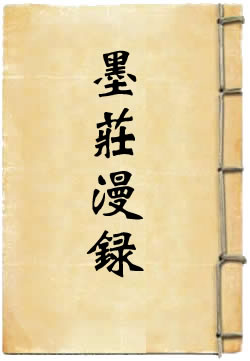 墨莊漫録